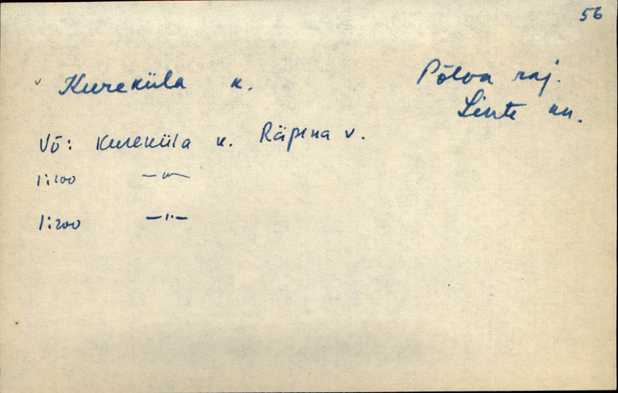 56
Kureküla k. Põlva raj.
Linte kn.
Võ: Kureküla k. Räpina v.
1:100 —"—
1:200 —"—